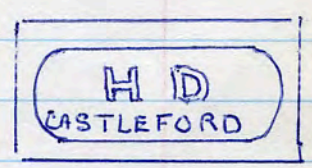 H D
CASTLEFORD